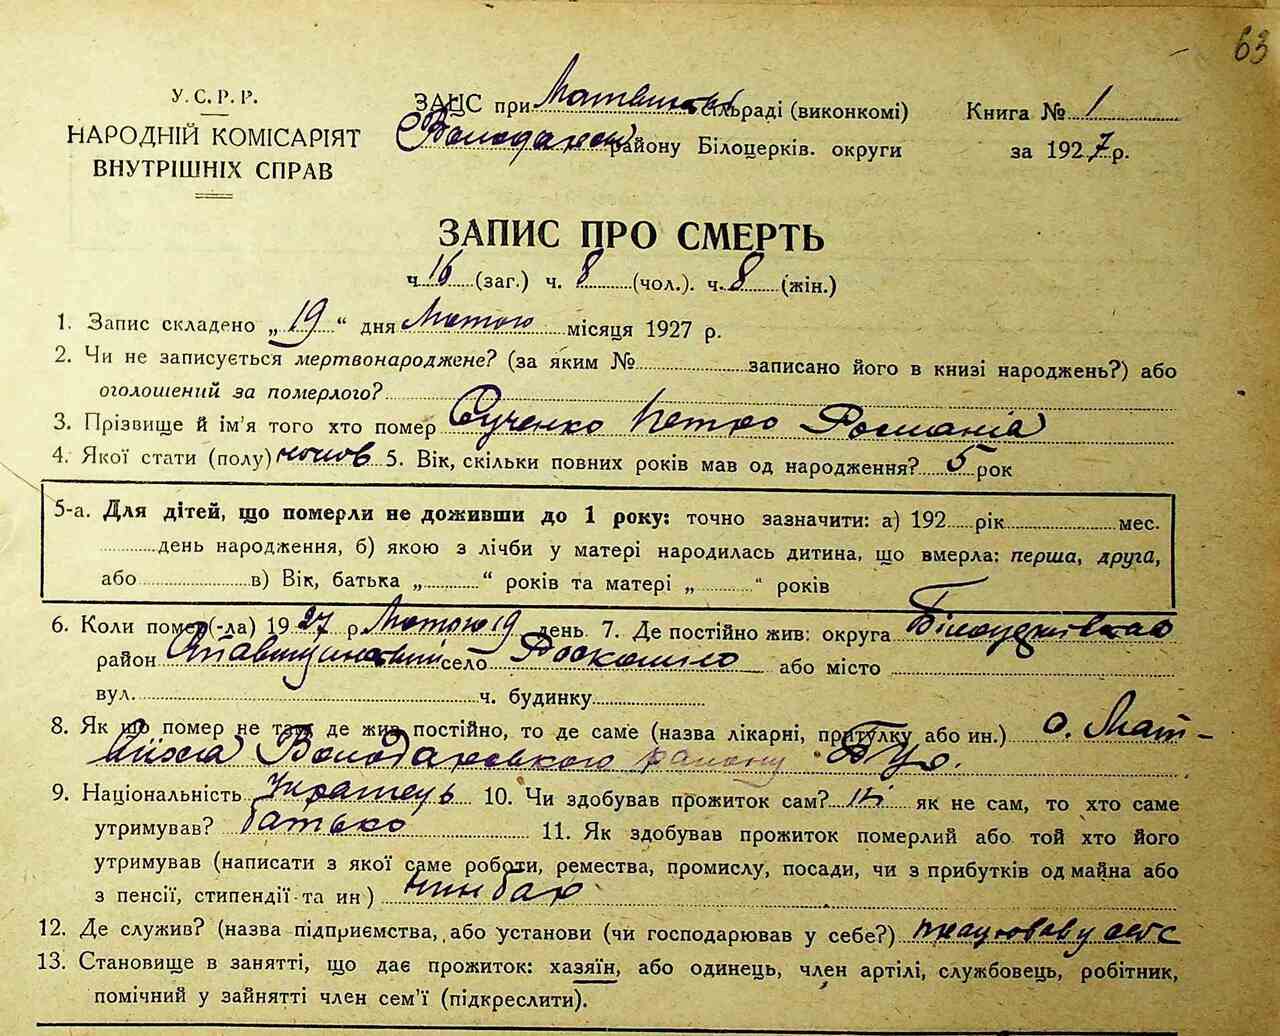 63
У. С. Р. Р.
НАРОДНІЙ КОМІСАРІЯТ
ВНУТРІШНІХ СПРАВ
ЗАЦС при сільраді (виконкомі)
району Білоцерків. округи
Книга № 1
за 1927 р.
ЗАПИС ПРО СМЕРТЬ
ч 16 (заг.) ч. 8 (чол.). ч. 8 (жін.)
1. Запис складено „ 19 “ дня Лютого місяця 1927 р.
2. Чи не записується мертвонароджене? (за яким № записано його в книзі народжень?) або
оголошений за померлого?
3. Прізвище й ім'я того хто помер Сученко Петро Романів
4. Якої стати (полу) чолов 5. Вік, скільки повних років мав од народження? 5 рок
5-а. Для дітей, що померли не доживши до 1 року: точно зазначити: а) 192 рік мес.
день народження, б) якою з лічби у матері народилась дитина, що вмерла: перша, друга,
або в) Вік, батька „ “ років та матері „ “ років
6. Коли помер(-ла) 1927 р Лютого 19 день 7. Де постійно жив: округа Білоцерківская
район село або місто
вул. ч. будинку
8. Як що помер не там де жив постійно, то де саме (назва лікарні, притулку або ин.)
Володарського району БЦо.
9. Національність Українець 10. Чи здобував прожиток сам? ні як не сам, то хто саме
утримував? батько 11. Як здобував прожиток померлий або той хто його
утримував (написати з якої саме роботи, ремества, промислу, посади, чи з прибутків од майна або
з пенсії, стипендії та ин)
12. Де служив? (назва підприємства, або установи (чи господарював у себе?) працював у себе
13. Становище в занятті, що дає прожиток: хазяїн, або одинець, член артілі, службовець, робітник,
помічний у зайнятті член сем'ї (підкреслити).